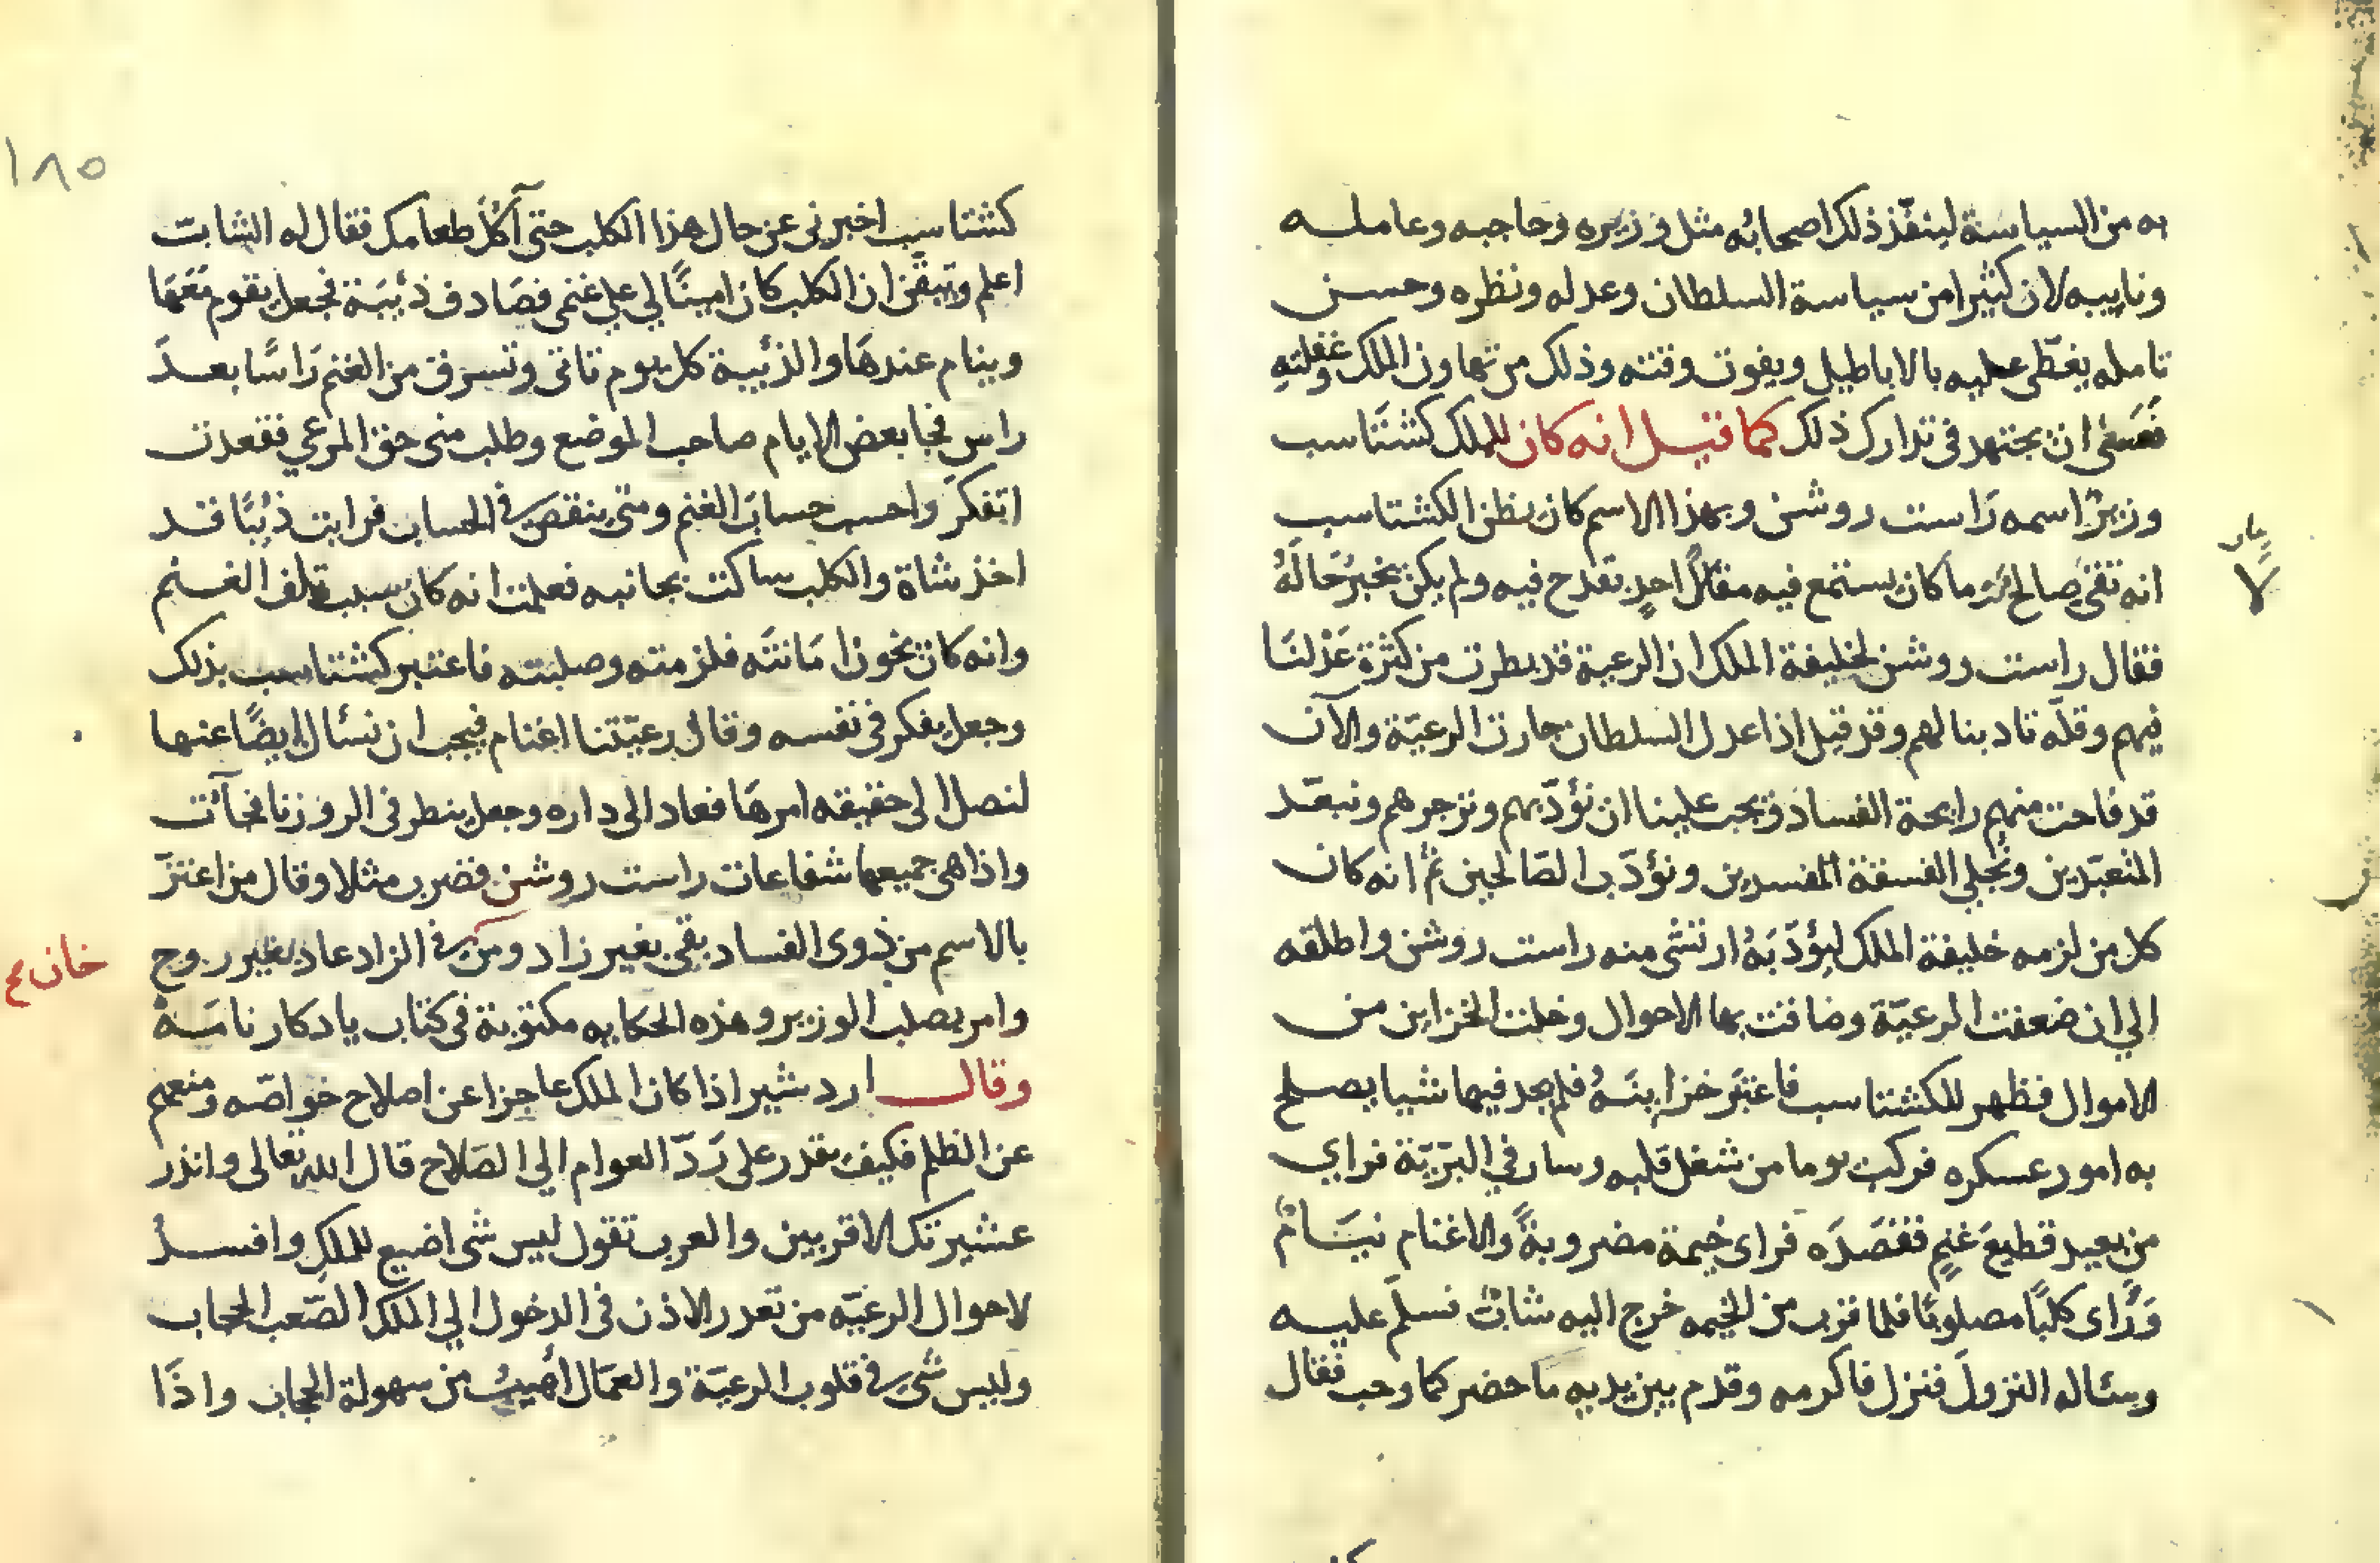 به من السياسة لينفّذ ذلك اصحابُه مثل وزيره وحاجبه وعامله
ونايبه لان كثيرا من سياسة السلطان وعدله ونظره وحسن
تامله يغطّى عليه بالاباطيل ويفوت وقته وذلك من تهاون الملك وغفلته
ان يجتهد فى تدارك ذلك كما قيل انه كان للملك كشتاسب
وزيرٌ اسمه رَاست روشن وبهذا الاسم كان يظن الكشتاسب
انه تقىّ صالح وما كان يستمع فيه مقالَ احدٍ يقدح فيه ولم يكن يخبرُ حَالَهُ
فقال راست روشن لخليفة الملك ان الرعية قد بطرت من كثرة عَدْلنَا
فيهم وقلّه تاديبنا لهم وقد قيل اذا عدل السلطان جارت الرعيّة والآن
قد فاحت منهم رايحة الفساد ويجب علينا ان نؤدّبهم ونزجرهم ونبعّد
المتعبّدين ونُجلى الفسقة المفسدين ونؤدّب الصّالحين ثم انه كان
كل من لزمه خليفة الملك ليؤدّبَهُ ارتشى منه راست روشن واطلقه
الي ان ضعفت الرعيّة وضاقت بها الاحوال وخلت الخزاين من
الاموال فظهر للكشتاسب فاعتبَر خزاينَهُ فلم يجد فيها شيا يصلح
به امور عسكره فركب يوما من شغل قلبه وسار في البرّيّة فراي
من بعيد قطيعَ غنمٍ فقصَدَه فراى خيمة مضروبةً والاغنام نيَامٌ
وَرَاى كلبًا مصلوبًا فلما قرب من الخيمه خرج اليه شابٌ فسلّم عليه
وسئاله النزولَ فنزل فاكرمه وقدم بين يديه مَا حضر كما وجب فقال
١٨٥
كشتاسب اخبرنى عن حال هذا الكلب حتى آكُلَ طعامك فقال له الشابّ
اعلم وتيقّن ان الكلب كان امينًا لي على غنمى فصَادف ذئبَة فجعل يقوم مَعَهَا
وينام عندهَا والذئبية كل يوم تاتى وتسرق من الغنم رَاسًا بعدَ
راس فجا بعض الايام صاحب الموضع وطلب منى حق المرعي فقعدت
اتفكّر واحسب حسابَ الغنم ومتى ينقص فى الحساب فرايت ذئبًا قد
اخذ شاة والكلب ساكت بجانبه فعلمت انه كان سبب تلف الغنم
وانه كان يخون امَانتَه فلزمته وصلبته فاعتبر كشتاسب بذلك
وجعل يفكر فى نفسه وقال رعيّتنا اغنام فيجب ان نسئال ايضًا عنها
لنصل الى حقيقه امرهَا فعاد الى داره وجعل ينظر فى الروزنامجآت
واذا هى جميعها شفاعات راست روشن فضرب مثلا وقال من اغترّ
بالاسم من ذوى الفساد بقى بغير زاد ومن فى الزاد عاد بغير روح
خان صح
وامر بصلب الوزير وهذه الحكايه مكتوبة فى كتاب يادكار نامَهْ
وقال اردشير اذا كان الملك عاجزا عن اصلاح خواصّه ومنعهم
عن الظلم فكيف يقدر على رَدّ العوام الي الصَلاح قال الله تعالى وانذر
عشيرتك الاقربين والعرب تقول ليس شى اضيع للملك وافسدُ
لاحوال الرعيّه من تعدر الاذن فى الدخول الي الملك الصّعب الحجاب
وليس شى فى قلوب الرعيّة والعمّال أهيبُ من سهولة الحجاب واذَا